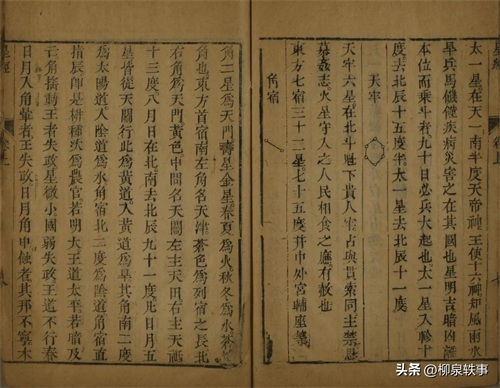 星經
太一星在天一南半度天帝神主使十六神知風雨水
旱兵馬饑饉疾病災害之在其國也星明吉暗凶離
本位而乘斗者九十日必兵大起也太一星
度去北辰十五度半太一星去北辰十一度
天牢
天牢六星在北斗魁下貴人牢占與貫索同主禁愆
暴淫志火星守人之人民相食之應有赦也
東方七宿三十二星七十五度并中外宮輔座等
角宿
角二星為天門壽星金星春夏為火秋冬為水
角也東方首宿南左角名天津蒼色為列宿之長北
右角為天門黃色中間名天關左主天田右主天祇
十三度八月日在北南去北辰九十一度凡日月五
星皆從天關行此為黃道入黃道為旱其角南二度
為太陽道入陰道為水角宿北三度為陰道角宿直
指辰師是耕種次為農官若明大王道太平若暗及
芒角搖動王者失政星微小國弱失政王道不行春
日月入角暈者王失政日月角中蝕者其邦不寧木
星經
头条 @柳泉轶事